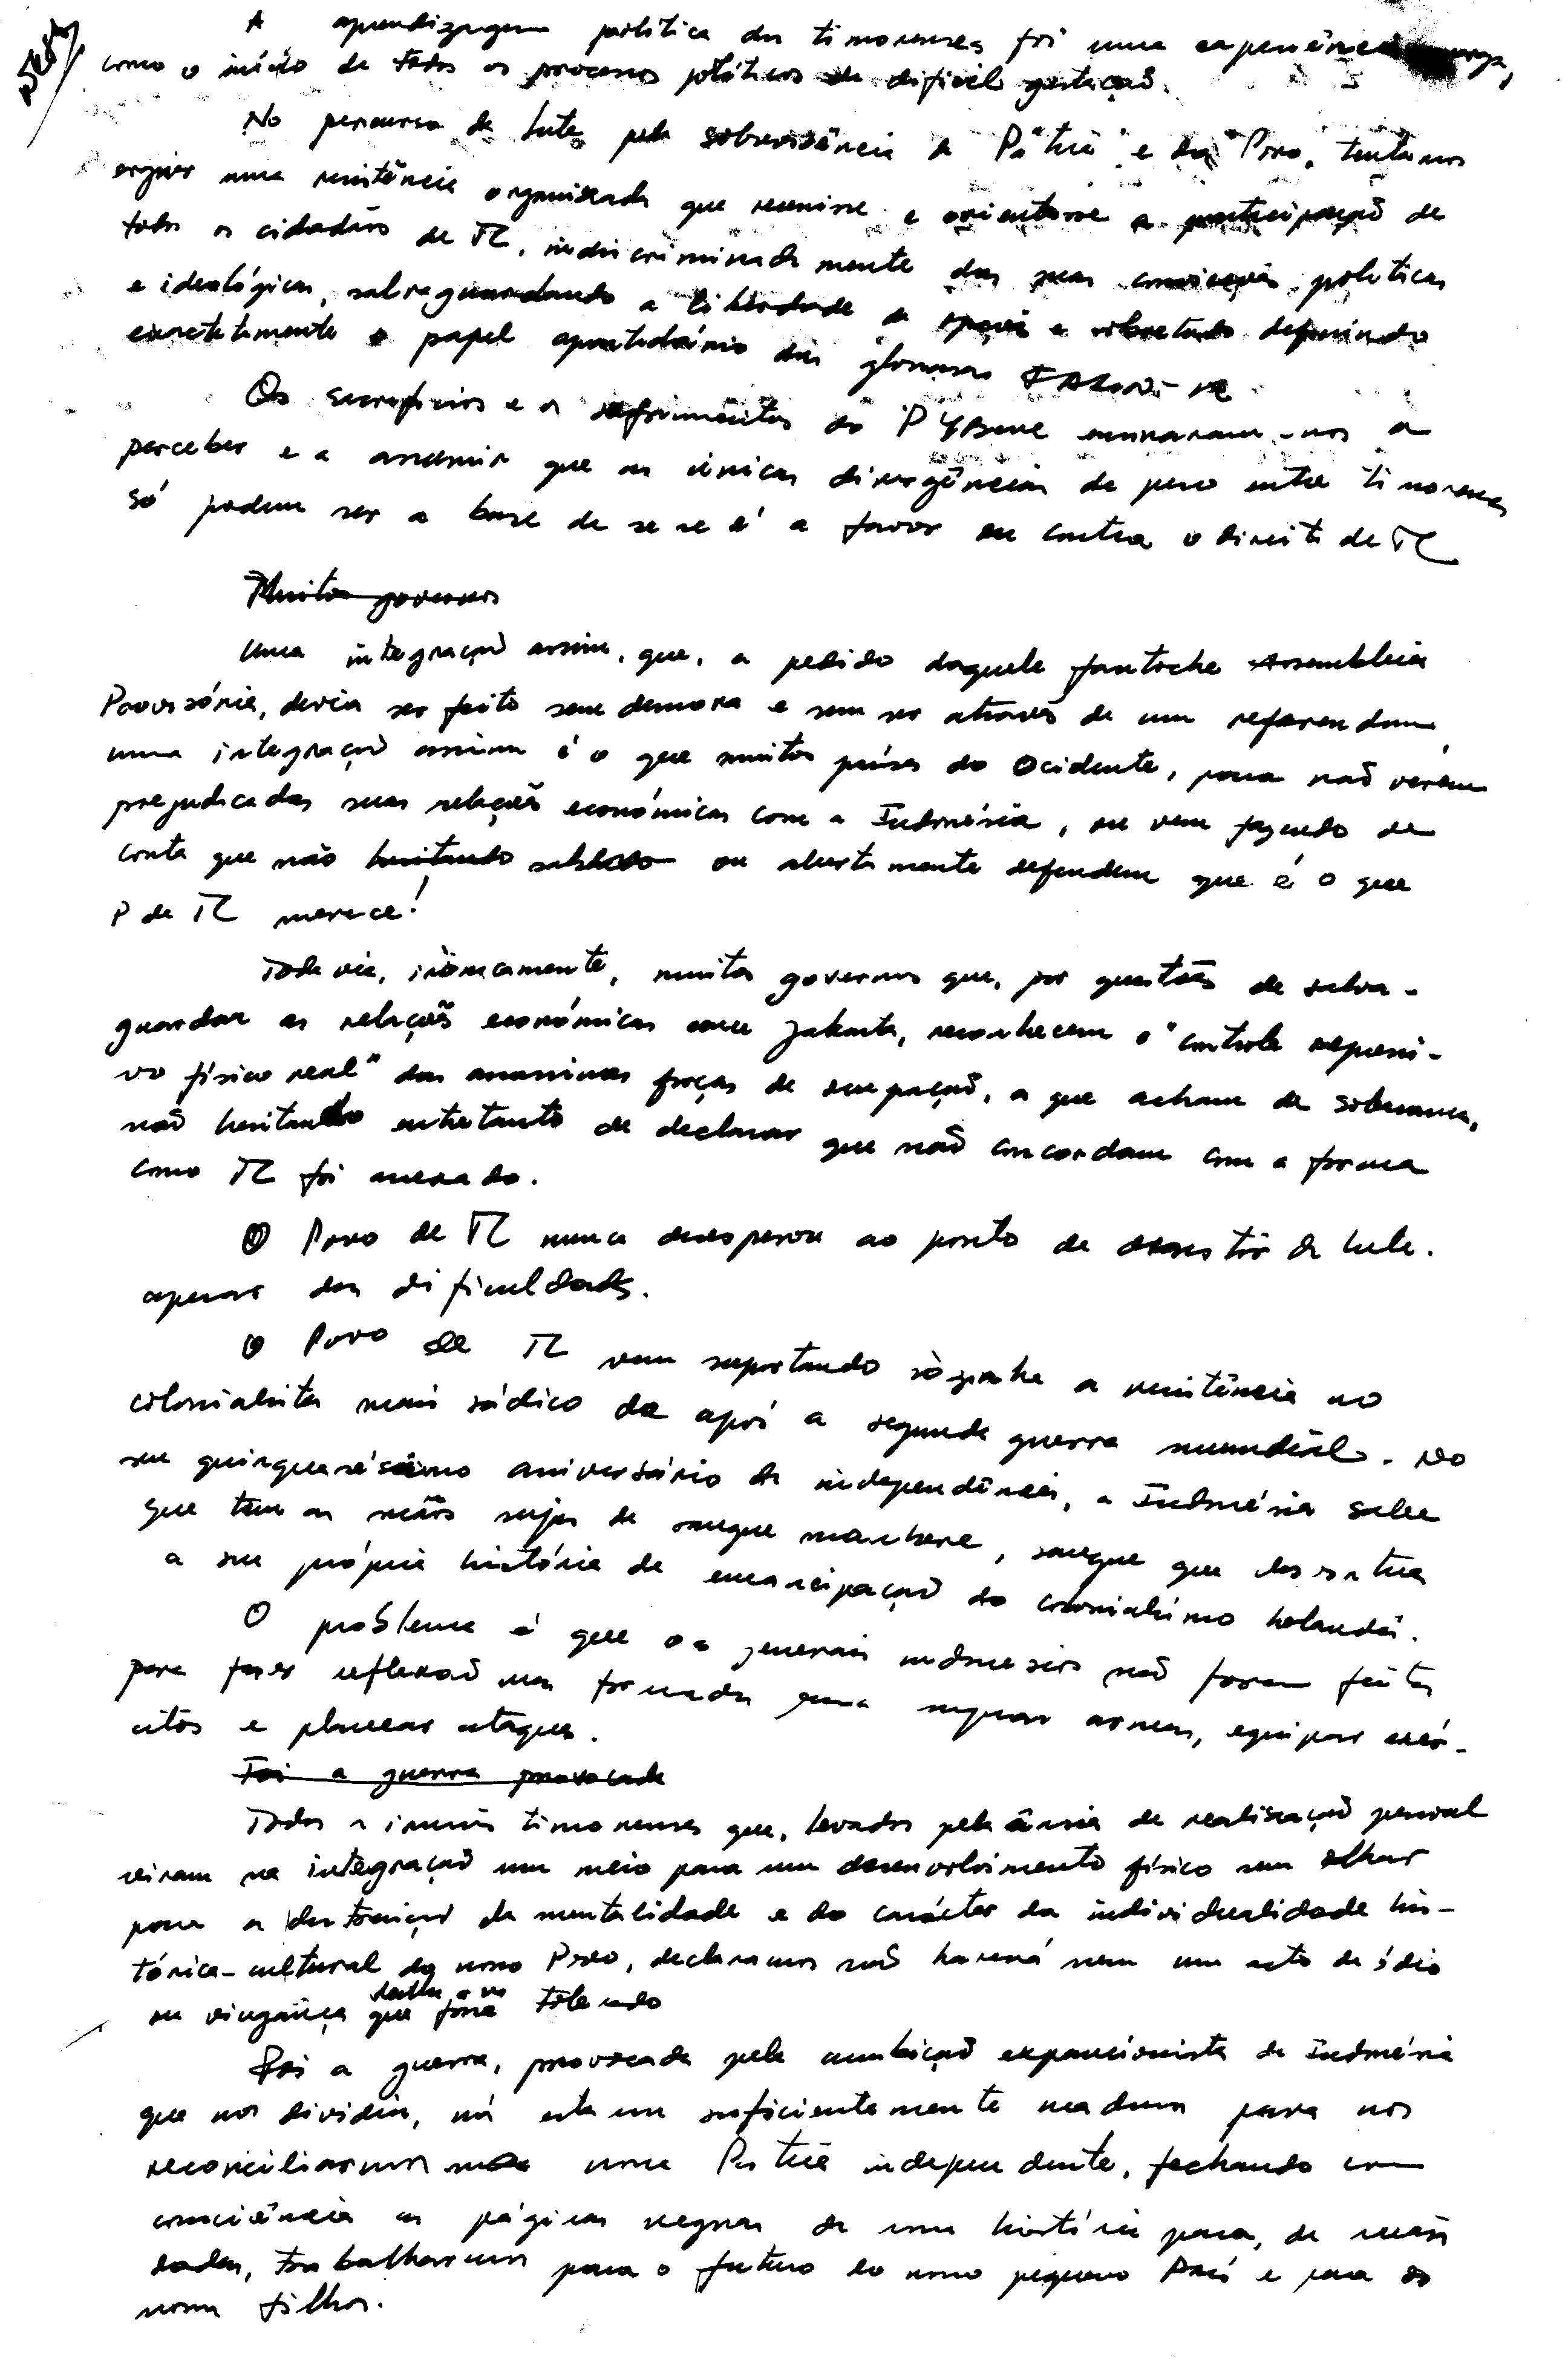 A aprendizagem política dos timorenses foi uma experiência
como o início de todos os processos políticos de difícil gestação.
No percurso da luta pela sobrevivência da Pátria e do Povo, tentamos
erguer uma resistência organizada que reunisse e orientasse a participação de
todos os cidadãos de TL, indiscriminadamente das suas convicções políticas
e ideológicas, salvaguardando a liberdade de opção e sobretudo definindo
correctamente o papel apartidário das gloriosas FALINTIL
Os sacrifícios e os sofrimentos do P Maubere ensinaram-nos a
perceber e a assumir que as únicas divergências de peso entre timorenses
só podem ser a base de se se é a favor ou contra o direito de TL
Muitos governos
Uma integração assim, que, a pedido daquele fantoche Assembleia
Provisória, devia ser feito sem demora e sem ser através de um referendum,
uma integração assim é o que muitos países do Ocidente, para não verem
prejudicadas suas relações económicas com a Indonésia, ou vem fazendo de
conta que não ou abertamente defendem que é o que
P de TL merece!
Todavia, irónicamente, muitos governos que, por questões de salva-
guardar as relações económicas com Jakarta, reconhecem o "controle repressi-
vo físico real" das assassinas forças de ocupação, a que acham de soberania,
não hesitando entretanto de declarar que não concordam com a forma
como TL foi anexado.
O Povo de TL nunca desesperou ao ponto de desistir da luta.
apesar das dificuldades.
O Povo de TL vem suportando sòzinho a resistência ao
colonialista mais sádico de após a segunda guerra mundial. No
seu quinquagésimo aniversário da independência, a Indonésia sabe
que tem as mãos sujas de sangue maubere, sangue que
a sua própria história de emancipação do colonialismo holandês.
O problema é que os generais indonésios não foram feitos
para fazer reflexão mas formados para empunhar armas, equipar exér-
citos e planear ataques.
Foi a guerra provocada
Todos os irmãos timorenses que, levados pela ânsia de realização pessoal
viram na integração um meio para um desenvolvimento físico sem olhar
para a destruição da mentalidade e do carácter da individualidade his-
tórica-cultural do nosso Povo, declaramos não haverá nem um acto de ódio
ou vingança que possa tolerado
Foi a guerra, provocada pela ambição expansionista da Indonésia
que nos dividiu, nós estamos suficientemente maduros para nos
reconciliarmos numa Pátria independente, fechando com
consciência as páginas negras de uma história para, de mãos
dadas, trabalharmos para o futuro do nosso pequeno País e para os
nossos filhos.